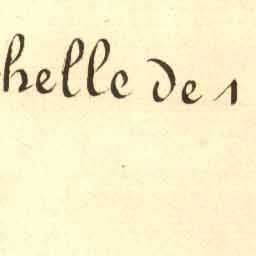 helle de 1